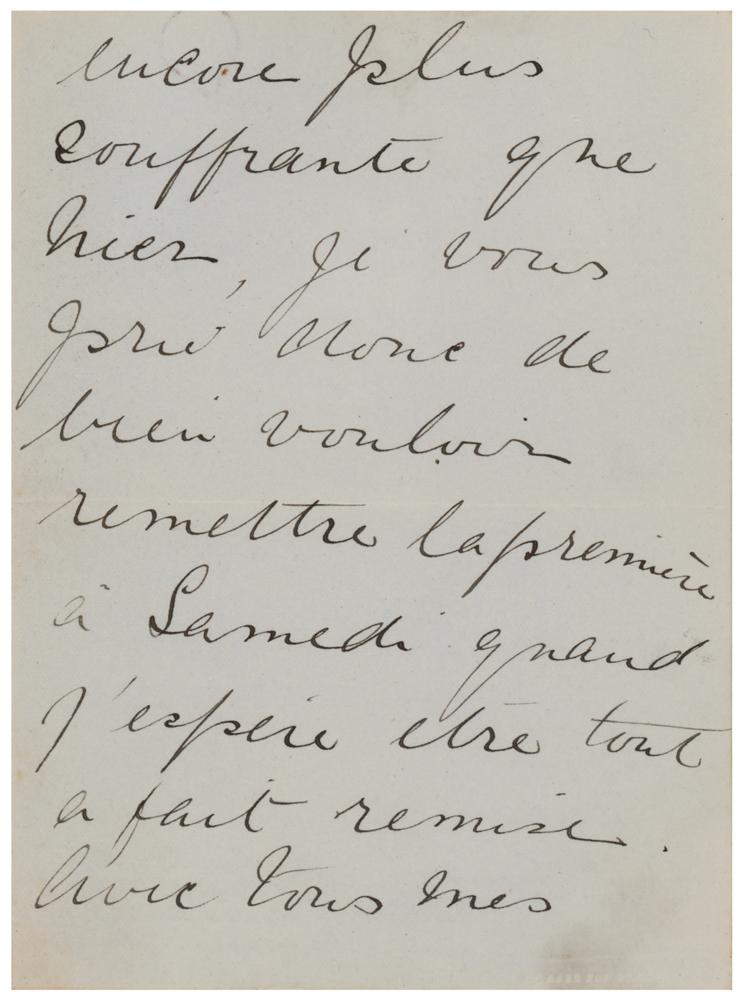 encore plus
souffrante que
hier, je vous
prie donc de
bien vouloir
remettre la première
à Samedi quand
j'espère etre tout
a fait remise.
Avec tous mes